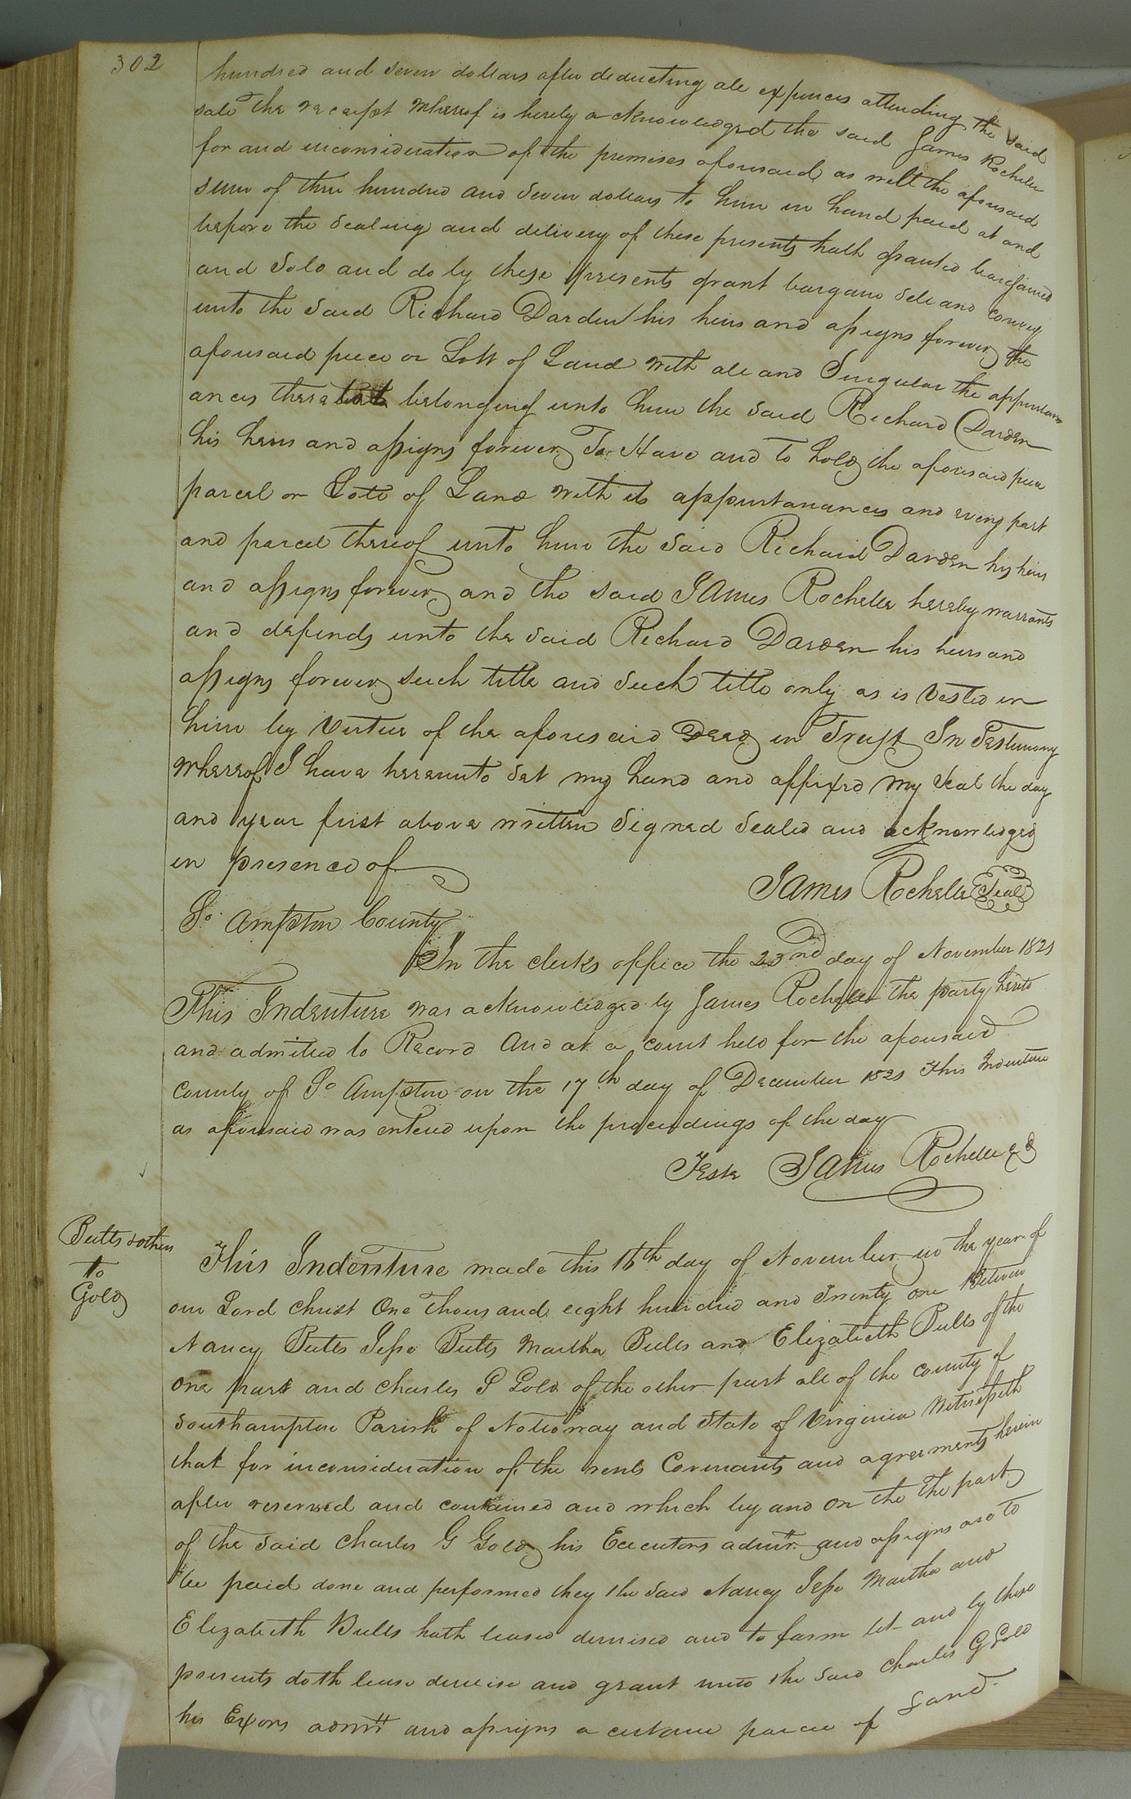 302
hundred and Seven dollars after deducting all expences attending the said
sale the receipt whereof is hereby acknowledged the said James Rochelle
for and inconsideration of the premises aforesaid as well the aforesaid
sum of three hundred and Seven dollars to him in hand paid at and
before the Sealing and delivery of these presents hath granted bargained
and Sold and do by these presents grant bargain Sell and Convey
unto the said Richard Darden his heirs and assigns forever the
aforesaid peice or Lott of Land with all and Singular the appurten
ances there belonging unto him the said Richard Darden
his heirs and assigns forever To Have and to hold the aforesaid peice
parcel or Lott of Land with its appurtanances and every part
and parcel thereof unto him the Said Richard Darden his heirs
and assigns forever and the said James Rochelle hereby warrants
and defends unto the Said Richard Darden his heirs and
assigns forever such title and such title only as is vested in
him by Virtue of the aforesaid Deed in Trust In Testimony
whereof I have hereunto Set my hand and affixed my Seal the day
and year first above written Signed Sealed and acknowledged
in presence of
James Rochelle Seal
So. ampton County
In the clerks office the 23nd day of November 1821
This Indenture was acknowledged by James Rochelle the party hereto
and admitted to Record And at a court held for the aforesaid
county of So ampton on the 17th day of December 1821 This Indenture
as aforesaid was entered upon the proceedings of the day
Teste James Rochelle
Butts & others
to
Gold
This Indenture made this 16th day of November in the year of
our Lord christ One Thousand eight hundred and Twenty one Between
Nancy Butts Jesse Butts Martha Butts and Elizabeth Butts of the
one part and charles G Gold of the other part all of the county of
Southampton Parish of Nottoway and State of Virginia Witnesseth
that for inconsideration of the rents Covenants and agreements herein
after reserved and contained and which by and on the the part
of the said charles G Gold his Executors admrs. and assigns are to
be paid done and performed they the said Nancy Jesse Martha and
Elizabeth Butts hath leased demised and to farm let and by these
presents doth lease demise and grant unto the said charles G Gold
his Exors admrs and assigns a certain parcel of Land.